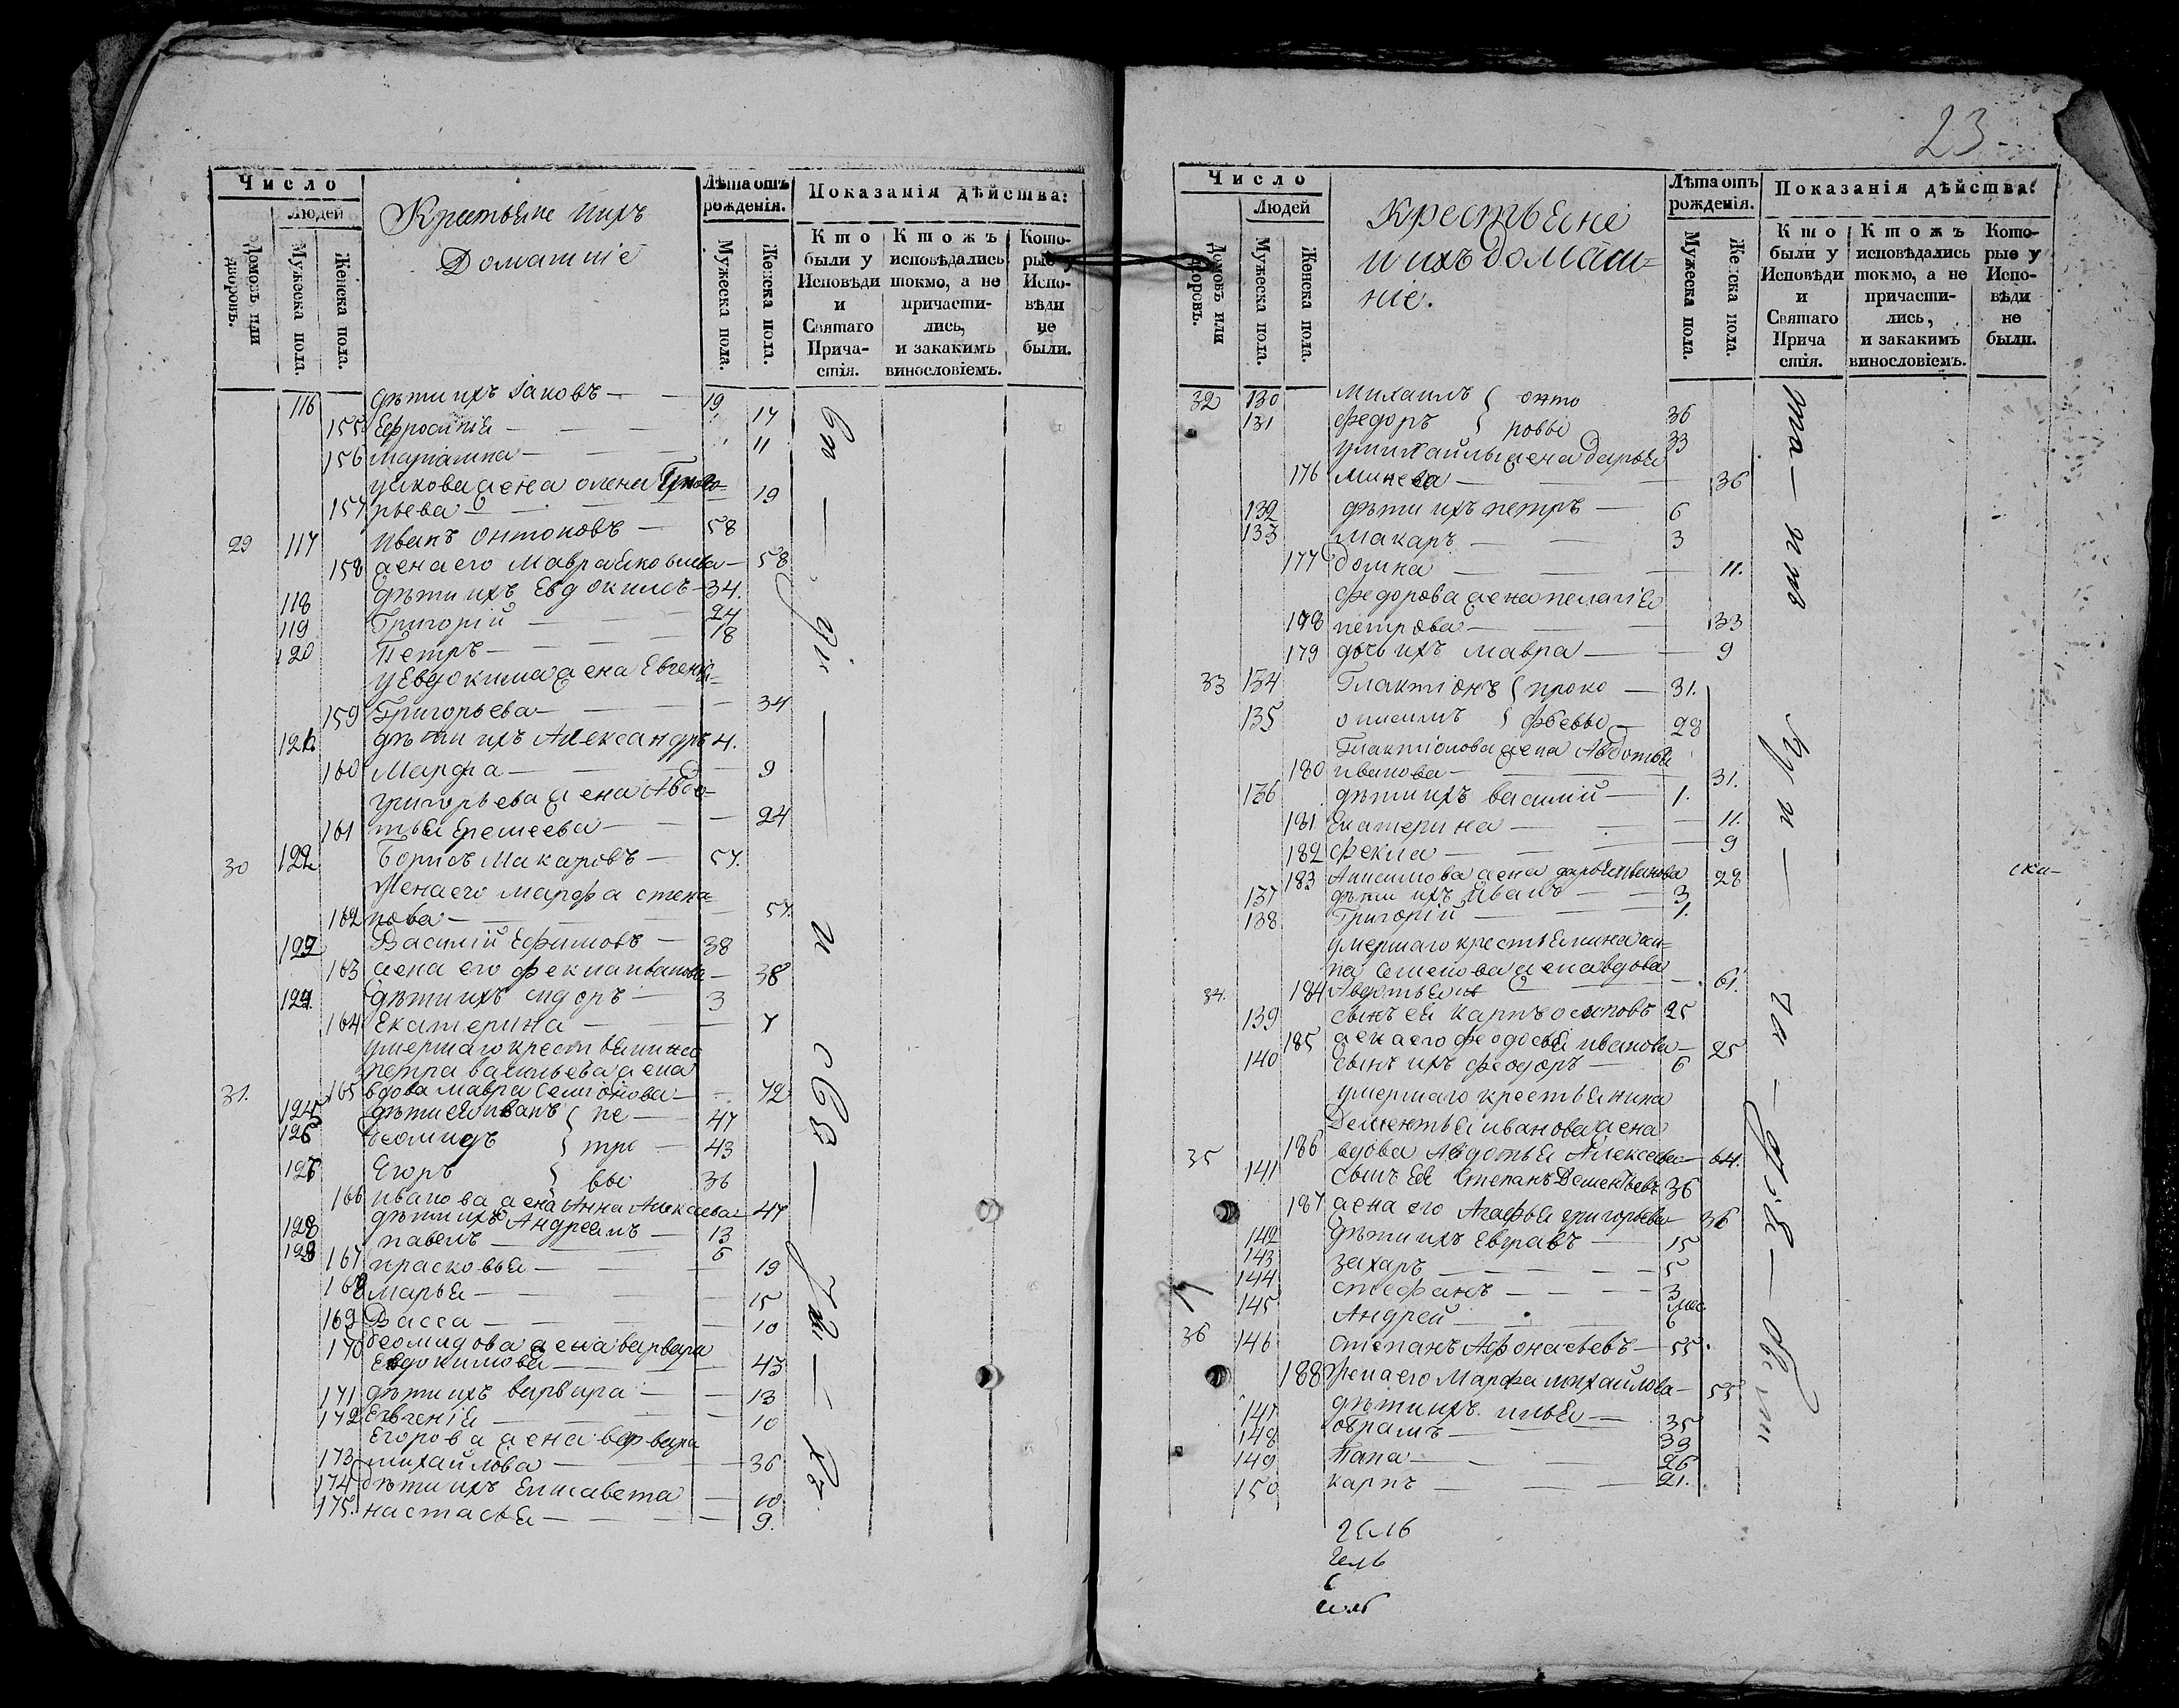 23
Число
Людей
Домовъ или дворовъ.
Мужеска пола.
Женска пола.
Крестьяне ихъ
Домашніе
Лѣта отъ рожденія.
Мужеска пола.
Женска пола.
Показанія дѣйства:
Кто были у Исповѣди и Святаго Причастія.
Ктожъ исповѣдались токмо, а не причастились, и закакимъ винословіемъ.
Которые у Исповѣди не были.
116 дѣти ихъ Iаковъ 19
155 Ефросинія 17
156 Марианна 11
у Якова жена олена Григо-
157 рьева 19
29 117 Иванъ Онтоновъ 58
158 жена его Мавра Яковлева 58
118 дѣти ихъ Евдокимъ 34.
119 Григорій 24
120 Петръ 18
у Евдокима жена Евгенія
159 Григорьева 34
121 дѣти ихъ Александръ 4.
160 Марфа 9
григорьева жена Авдо-
161 тья Еремеева 24
30 122 Борисъ Макаровъ 57.
Жена его Марфа степа-
162 нова 57.
123 Василій Ефимовъ 38
163 жена его Фекла иванова 38
124 дѣти ихъ сидоръ 3
164 Екатерина 7
умершаго крестьянина
петра васильева жена
31. 165 вдова мавра Семіонова 72
125 дѣти ея иванъ пе 47
126 Феомидъ тро 43
127 Егоръ вы 36
166 иванова жена Анна Алексеева 47
128 дѣти ихъ Андреянъ 13
129 павелъ 6
167 прасковья 19
168 марья 15
169 Васса 10
170 феомидова жена варвара
Евдокимова 43
171 дѣти ихъ варвара 13
172 Евгенія 10
Егорова жена варвара
173 михайлова 36
174 дѣти ихъ Елисавета 10
175. настасья 9.
Число
Людей
Домовъ или дворовъ.
Мужеска пола.
Женска пола.
Крестьяне
и ихъ домаш-
ніе.
Лѣта отъ рожденія.
Мужеска пола.
Женска пола.
Показанія дѣйства:
Кто были у Исповѣди и Святаго Прича стія.
Ктожъ исповѣдались токмо, а не причастились, и закакимъ винословіемъ.
Которые у Исповѣди не были.
32 130 михаилъ онто 36
131 федоръ новы 33
у михайлы жена Дарья
176 минева 36
132 дѣти ихъ петръ 6
133 Макаръ 3
177 домна 11.
федорова жена пелагія
178 петрова 33
179 дочь ихъ мавра 9
33 134 Глактіонъ проко 31.
135 онисимъ фьевы 28
Глактіонова жена Авдотья
180 иванова 31.
136 дѣти ихъ василій 1.
181 Екатерина 11.
182 фекла 9
183 Анисимова жена дарья иванова 28
137 дѣти ихъ иванъ 3
138 Григорій 1.
умершаго крестьянина оси-
па Семенова жена вдова
34. 184 61.
139 сынъ ея карпъ осиповъ 25
185 жена его феодосья иванова 25
140 сынъ ихъ феодоръ 6
умершаго крестьянина
Дементья иванова жена
35 186 вдова Авдотья Алексеева 64.
141 сынъ ея Степанъ Дементьевъ 36
187 жена его Агафья григорьева 36
142 дѣти ихъ Евгравъ 15
143 захаръ 5
144 стефанъ 3
145 Андрей 6 мес
36 146 степанъ Афонасьевъ 55.
188 Жена его Марфа михайлова 55
147 дѣти ихъ илья 35
148 обрамъ 33
149 Вапа 26
150 карпъ 21.